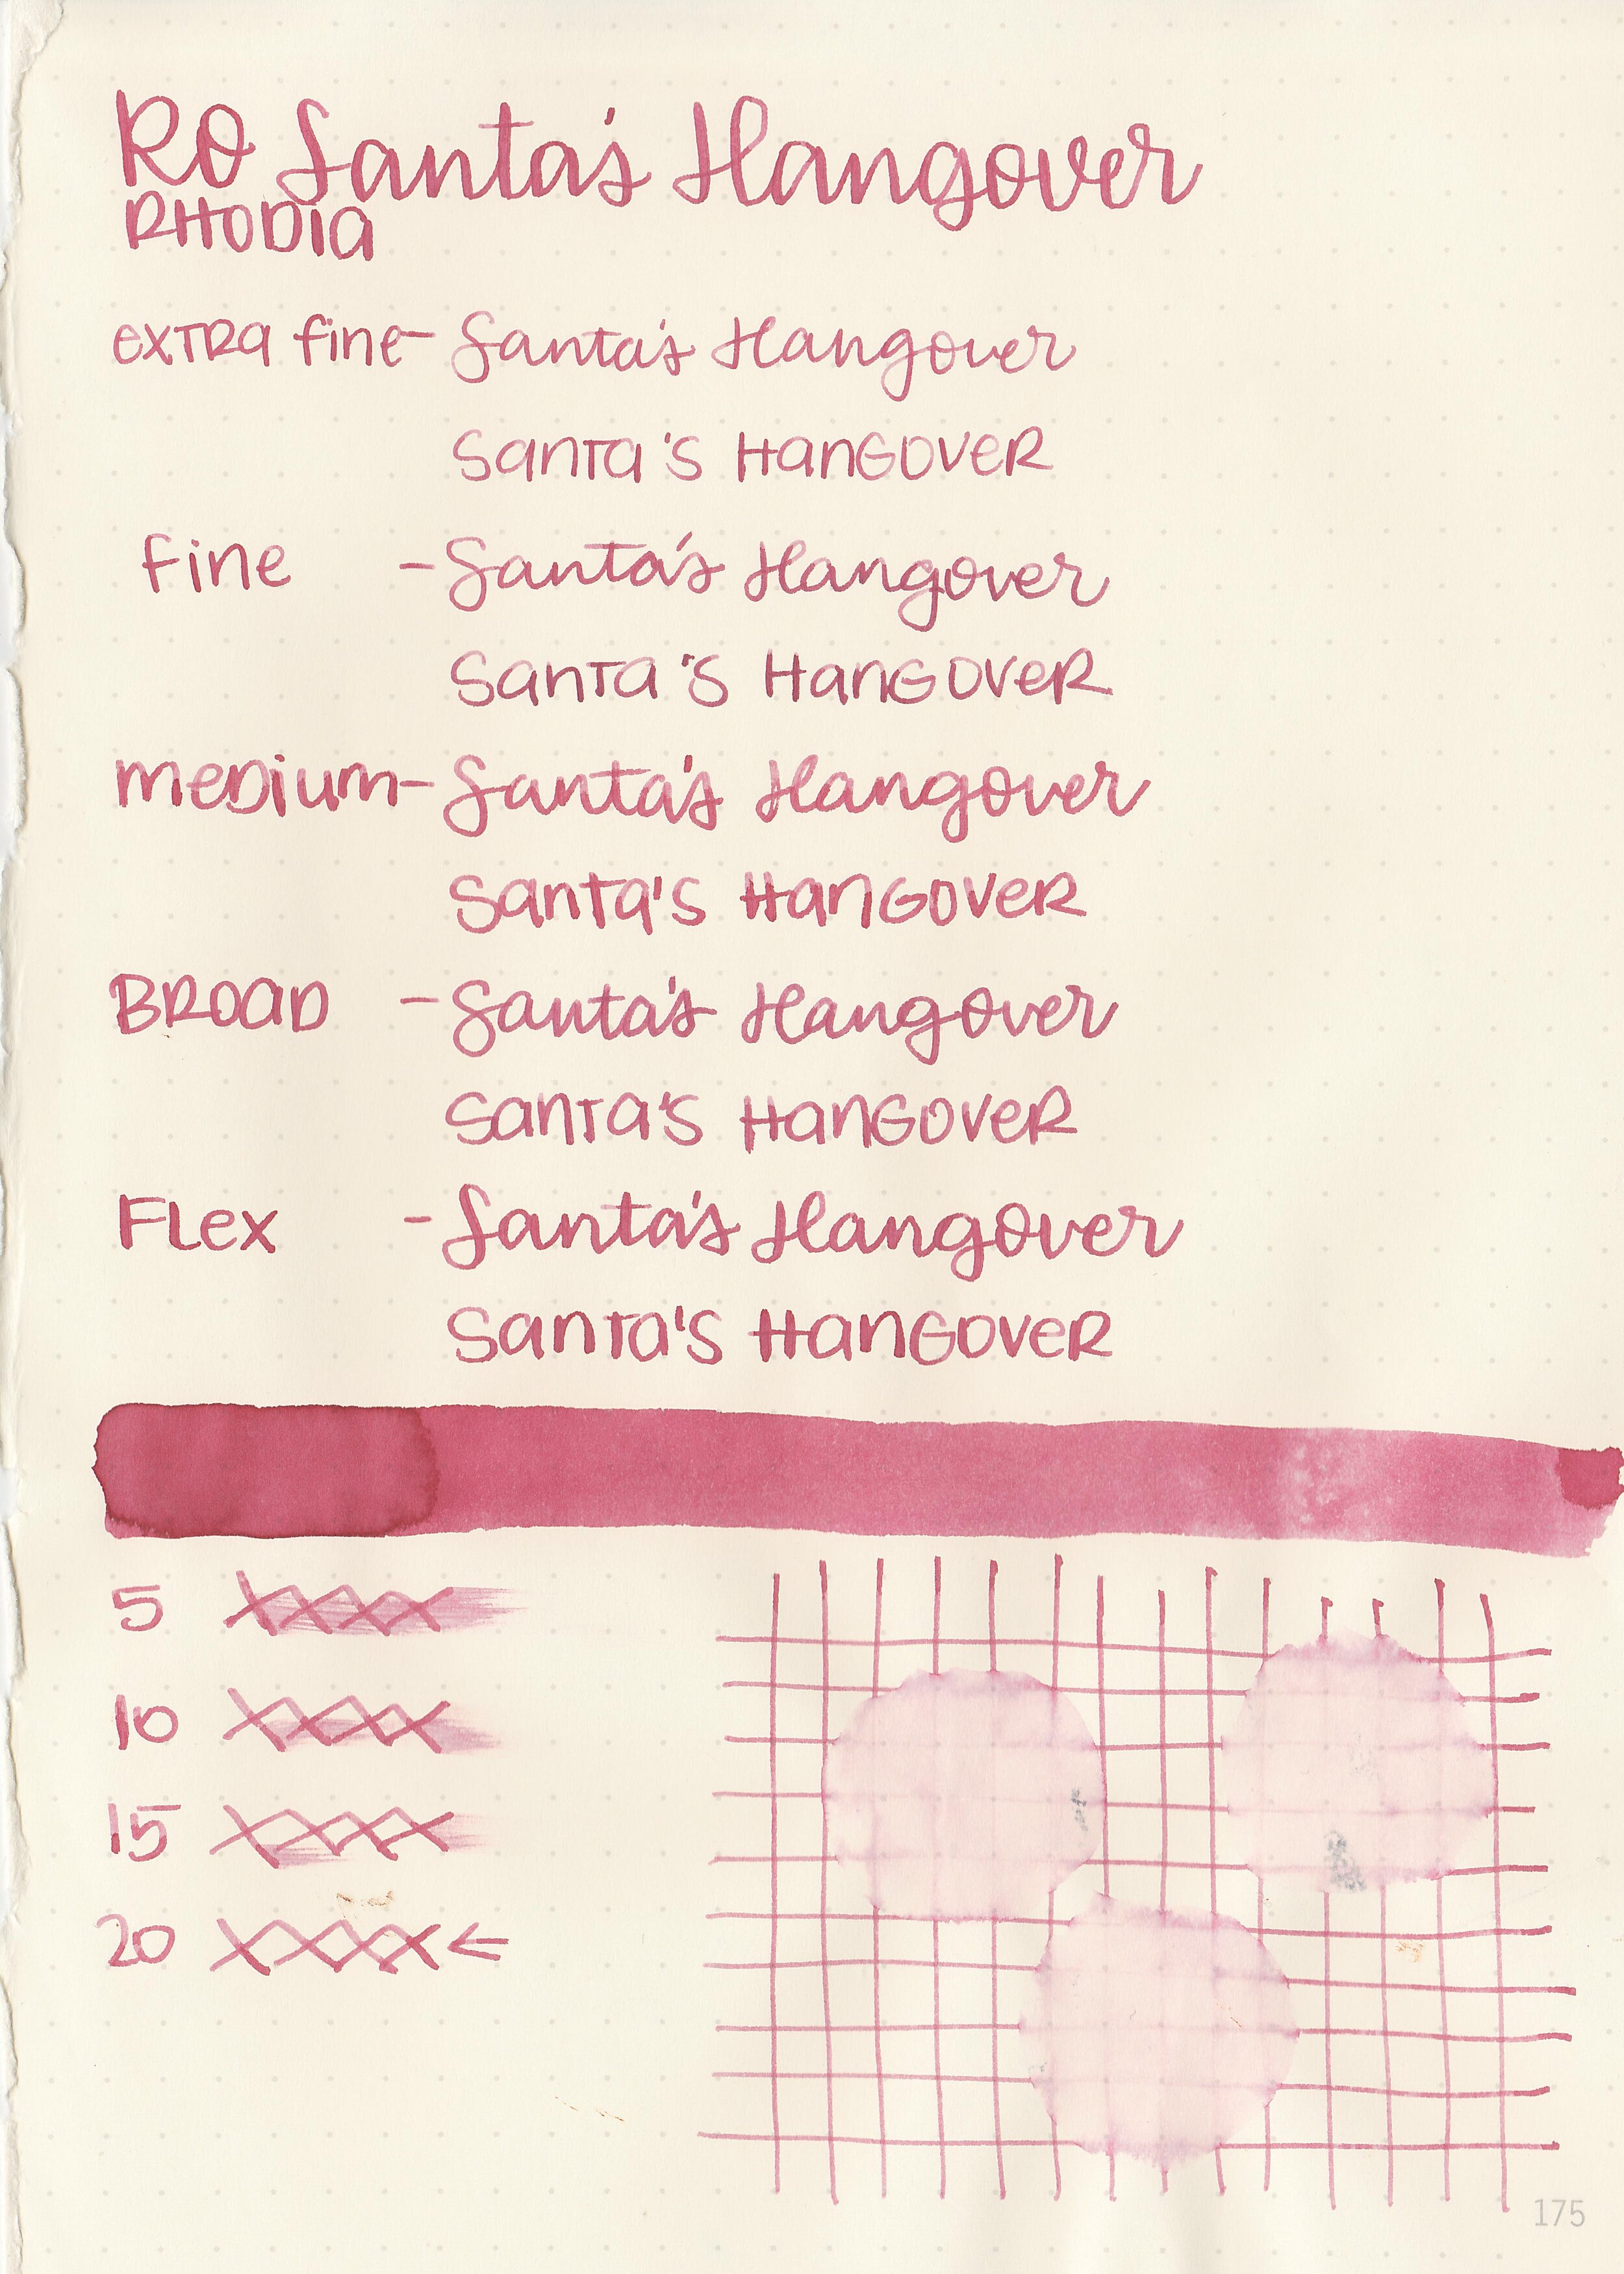 RO Santa's Hangover
RHODIA
extra fine - Santa's Hangover
Santa's Hangover
fine - Santa's Hangover
Santa's Hangover
medium - Santa's Hangover
Santa's Hangover
Broad - Santa's Hangover
Santa's Hangover
Flex - Santa's Hangover
Santa's Hangover
5 XXXX
10 XXXX
15 XXXX
20 XXXX ←
175